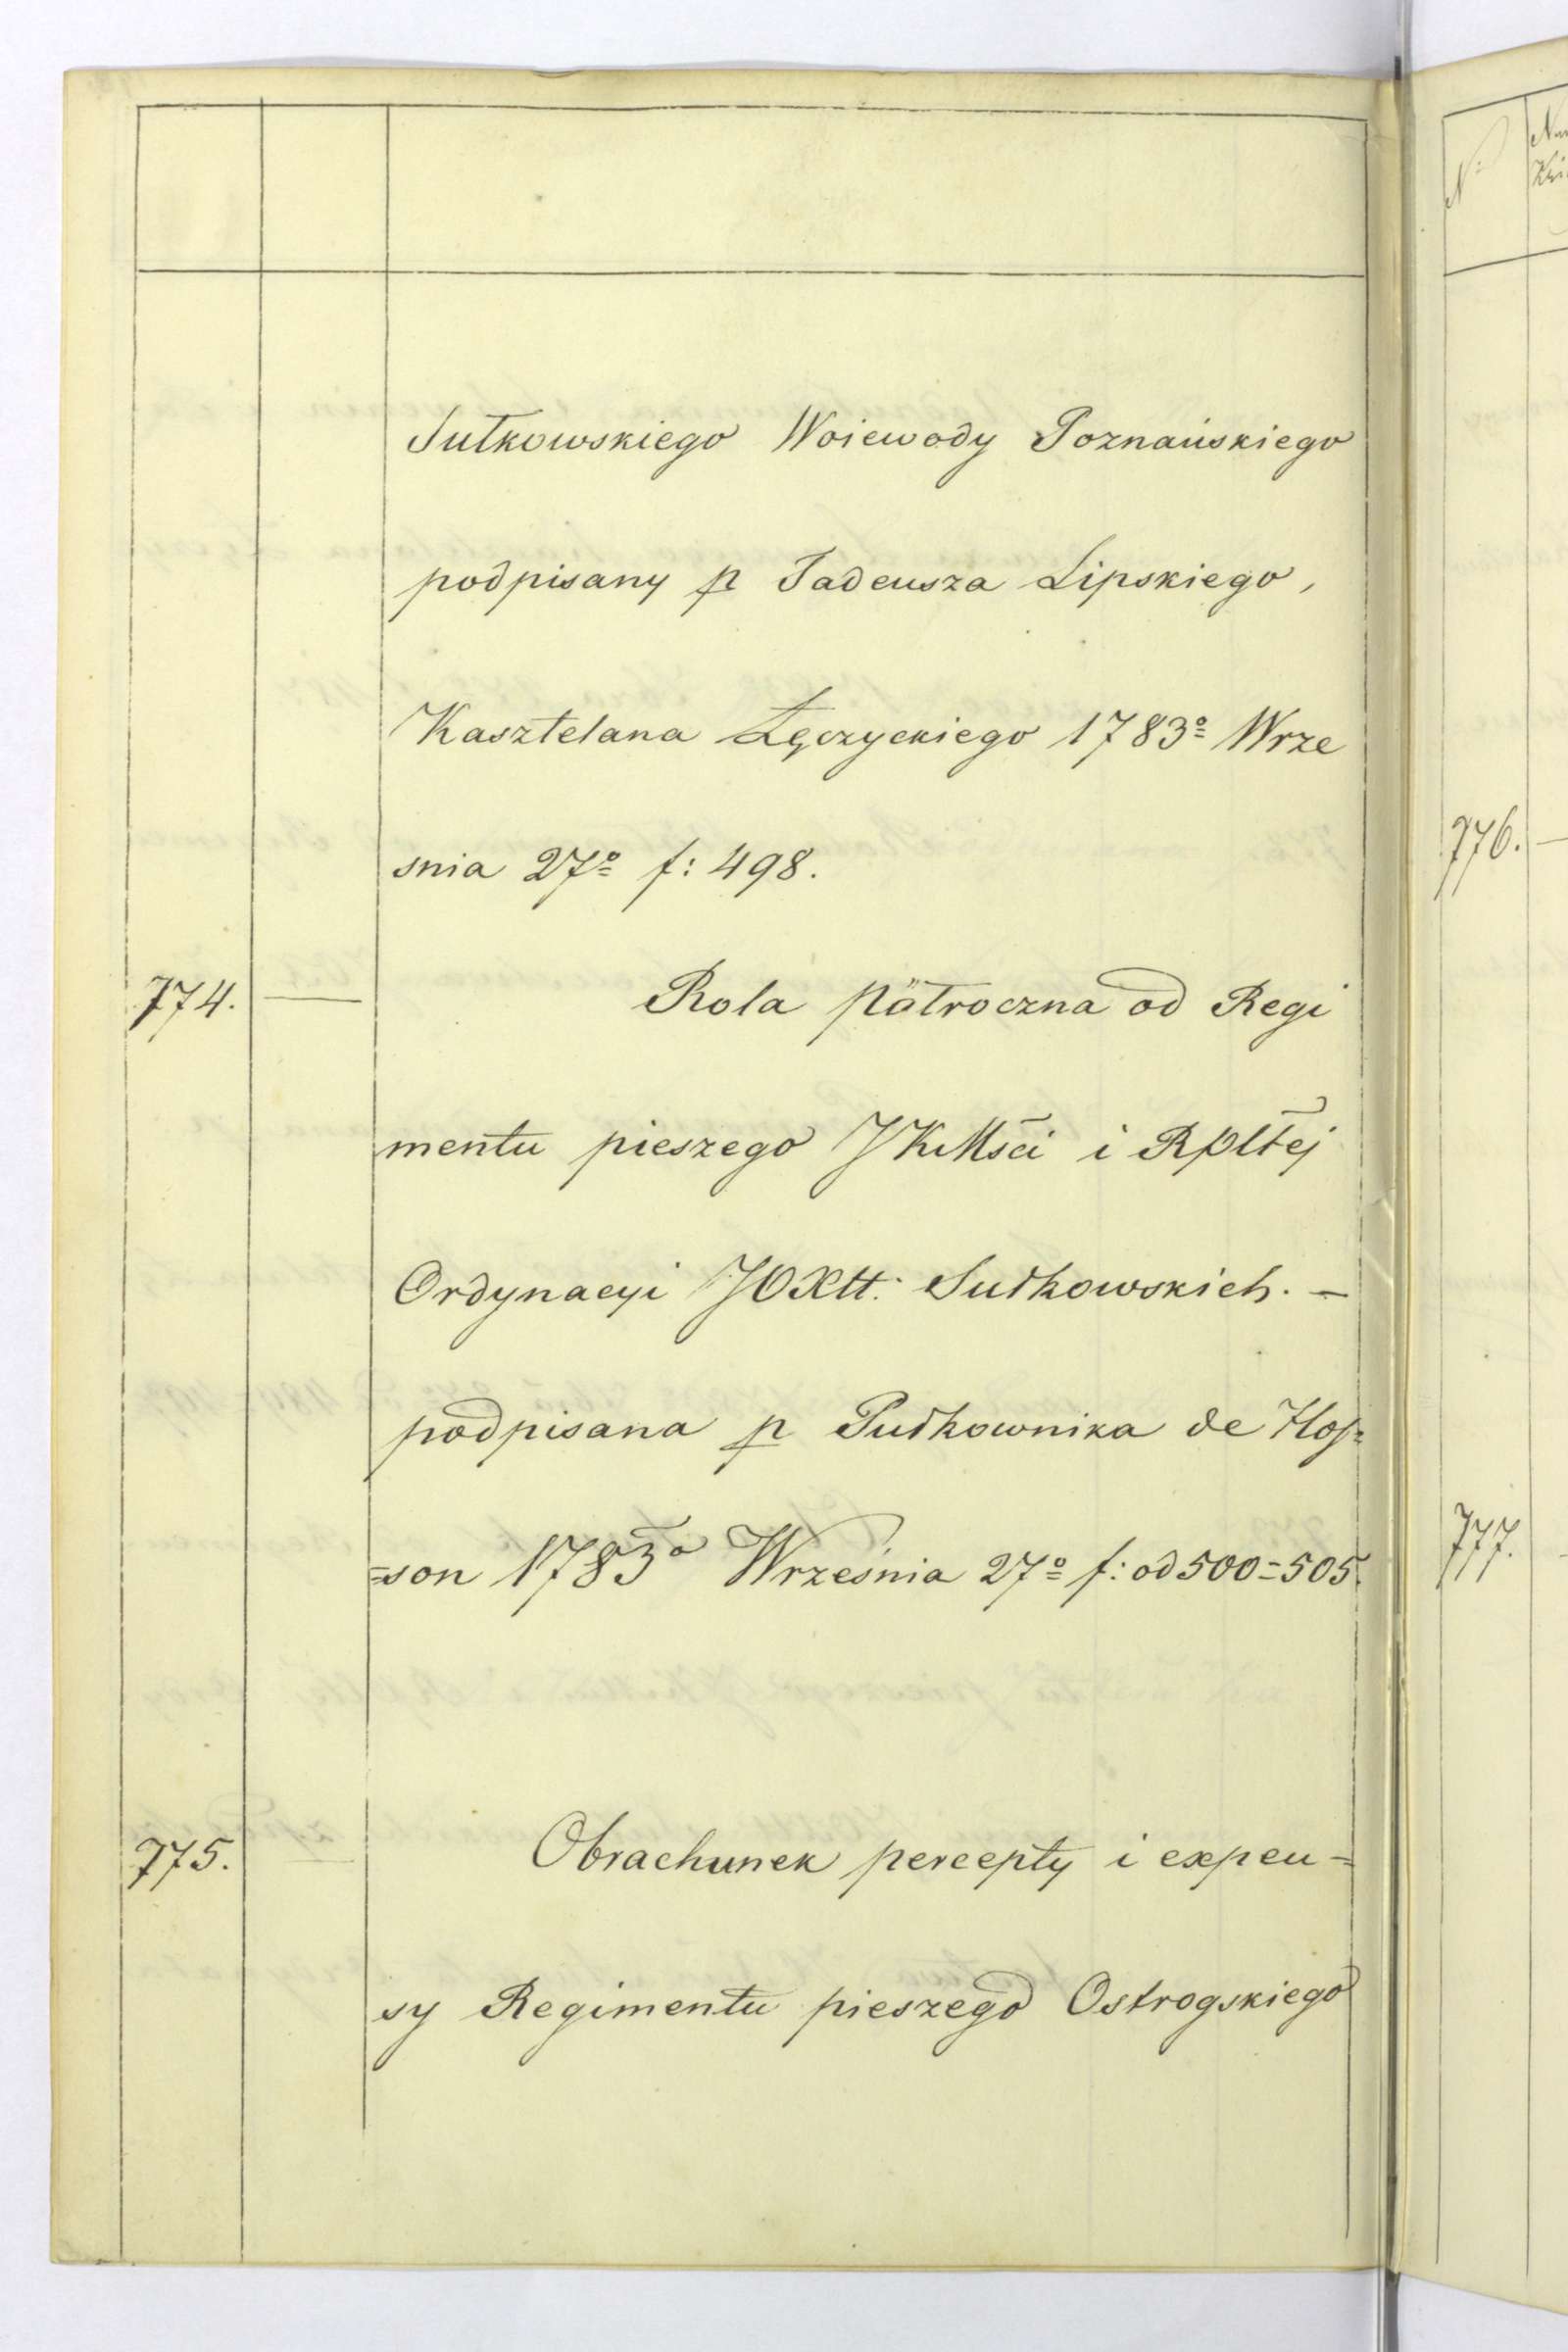 Sułkowskiego Woiewody Poznańskiego
podpisany p Tadeusza Lipskiego,
Kasztelana Łęczyckiego 1783º Wrze
snia 27º f: 498.
774. — Rola pätroczna od Regi
mentu pieszego JKMsci i Rpltej
Ordynacyi JOXtt: Sułkowskich. —
podpisana p Pułkownika de Hop=
=son 1783º Września 27º f: od 500=505.
775. — Obrachunek percepty i expen=
sy Regimentu pieszego Ostrogskiego
Nº
776. —
777.